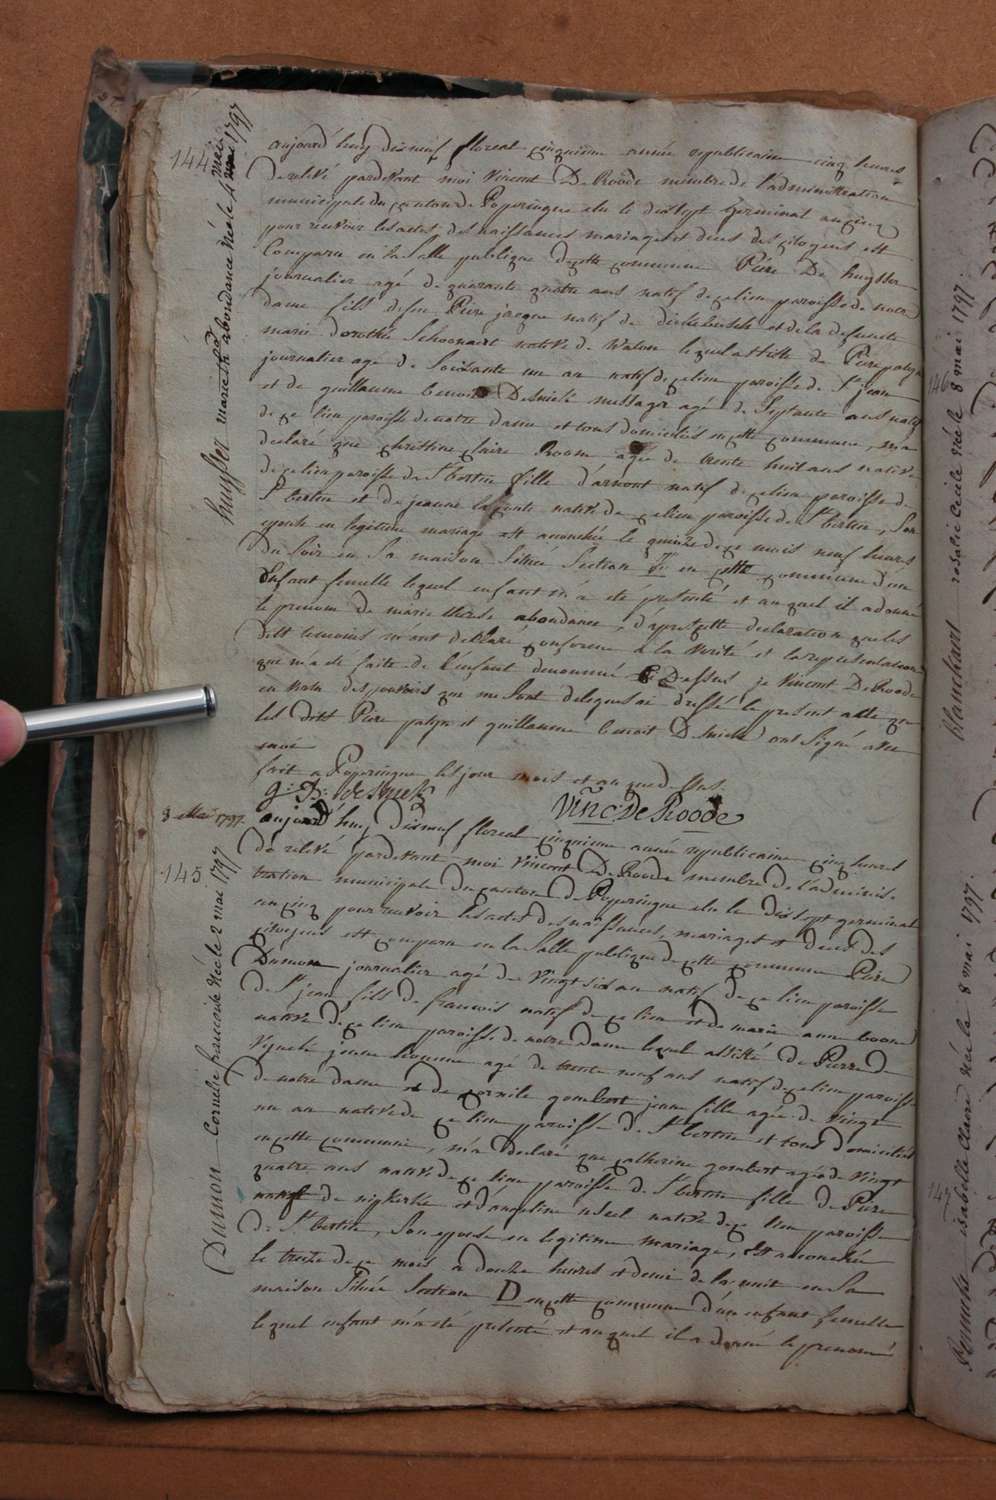 144
huysser marie th. abondance née le 4 mai 1797
aujourd'huy dixneuf floreal cinquieme année republicaine cinq heures
de relevé pardevant moi Vincent De Roode membre de l'administration
municipale du canton de Poperingue elu le dixsept Germinal an cinq
pour recevoir les actes des naissances mariages et deces des citoyens est
Comparu en la Salle publique de cette commune Pierre De huysser
journalier agé de quarante quatre ans natif de ce lieu paroisse de notre
dame fils de feu Pierre jacque natif de dickebusch et de la defuncte
marie dorothée Schoonaert native de Watou lequel assisté de Pierre
journalier agé de Soixante un an natif de ce lieu paroisse de St jean
et de guillaume benoit Desmielé messager agé de Septante ans natif
de ce lieu paroisse de notre dame et tous domiciliés en cette commune, m'a
declaré que christine claire Room agée de trente huit ans native
de ce lieu paroisse de St bertin fille d'arnout natif de ce lieu paroisse de
St bertin et de jeanne native de ce lieu paroisse de St bertin, Son
epouse en legitime mariage est accouchée le quinze de ce mois neuf heures
du Soir en Sa maison Sithée Section en cette commune d'un
Enfant femelle lequel enfant m'a été présenté, et auquel il a donné
le prenom de marie therese abondance, d'après cette declaration que les
dits temoins m'ont declaré conforme à la verité et la representation
que m'a été faite de l'enfant denommé ci Dessus, je Vincent De Roode
en vertu des pouvoirs que me Sont delegués ai dressé le present acte que
les dits Pierre et guillaume benoit Desmiele ont Signé avec
moi
fait a Poperingue les jour mois et an que dessus.
Vinc: De Roode
3 Mai 1797
145
Dumon Cornelie francoise née le 2 mai 1797
aujourd'huy dixneuf floreal cinquieme année republicaine cinq heures
de relevé pardevant moi Vincent De Roode membre de l'adminis-
tration municipale du canton de Poperingue elu le dixsept germinal
an cinq pour recevoir les actes des naissances, mariages et deces des
citoyens est comparu en la Salle publique de cette commune Pierre
Dumon journalier agé de Vingt six an natif de ce lieu paroisse
de St jean fils de francois natif de ce lieu et de marie anne boone
native de ce lieu paroisse de notre dame lequel assisté de Pierre de
jeune homme agé de trente neuf ans natif de ce lieu paroisse
de notre dame et de cornile gombert jeune fille agée de Vingt
un an native de ce lieu paroisse de St bertin et tous domiciliés
en cette commune, m'a declaré que catherine gombert agée de Vingt
quatre ans native de ce lieu paroisse de St bertin fille de Pierre
natif de nipkerke et d'angeline native de ce lieu paroisse
de St bertin, Son epouse en legitime mariage, est accouchée
le treize de ce mois a douze heures et demi de la nuit en Sa
maison Sithée Section D en cette commune d'un enfant femelle
lequel enfant m'a été présenté et auquel il a donné le prenom
146
blanckaert rosalie cecile née le 8 mai 1797.
isabelle claire née le 8 mai 1797.